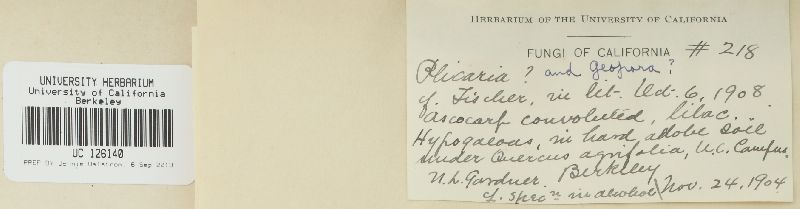 UNIVERSITY HERBARIUM
University of California
Berkeley
UC 126140
HERBARIUM OF THE UNIVERSITY OF CALIFORNIA
FUNGI OF CALIFORNIA # 218
Plicaria ? and Geopora ?
cf. Fischer, in lit. Oct. 6, 1908
ascocarp convoluted, lilac.
Hypogaeous, in hard adobe soil
under Quercus agrifolia, U.C. Campus.
N.L. Gardner. Berkeley
cf. spec<sup>n</sup> in alcohol Nov. 24, 1904